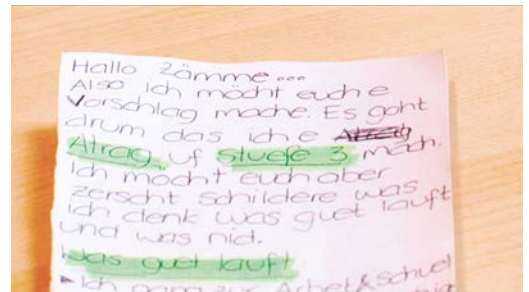 Hallo Zämme...
Also ich möcht euch e
Vorschlag mache. Es goht
drum das ich e
Atrag uf stuefe 3 mach.
Ich möcht euch aber
zerscht schildere was
ich denk was guet lauft
und was nid.
Was guet lauft
Ich gang zur Arbet & schuel